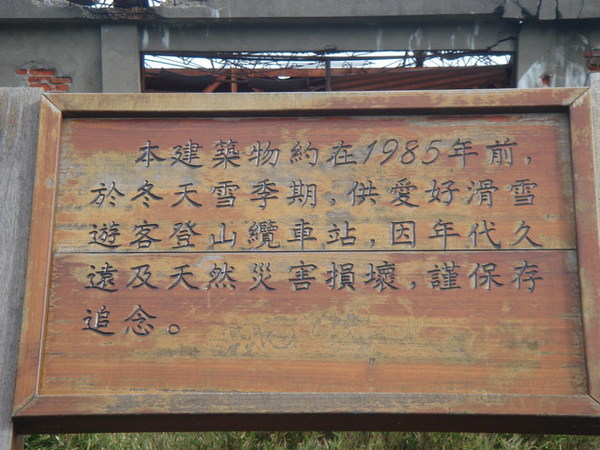 本建築物約在1985年前,
於冬天雪季期,供愛好滑雪
遊客登山纜車站,因年代久
遠及天然災害損壞,謹保存
追念。